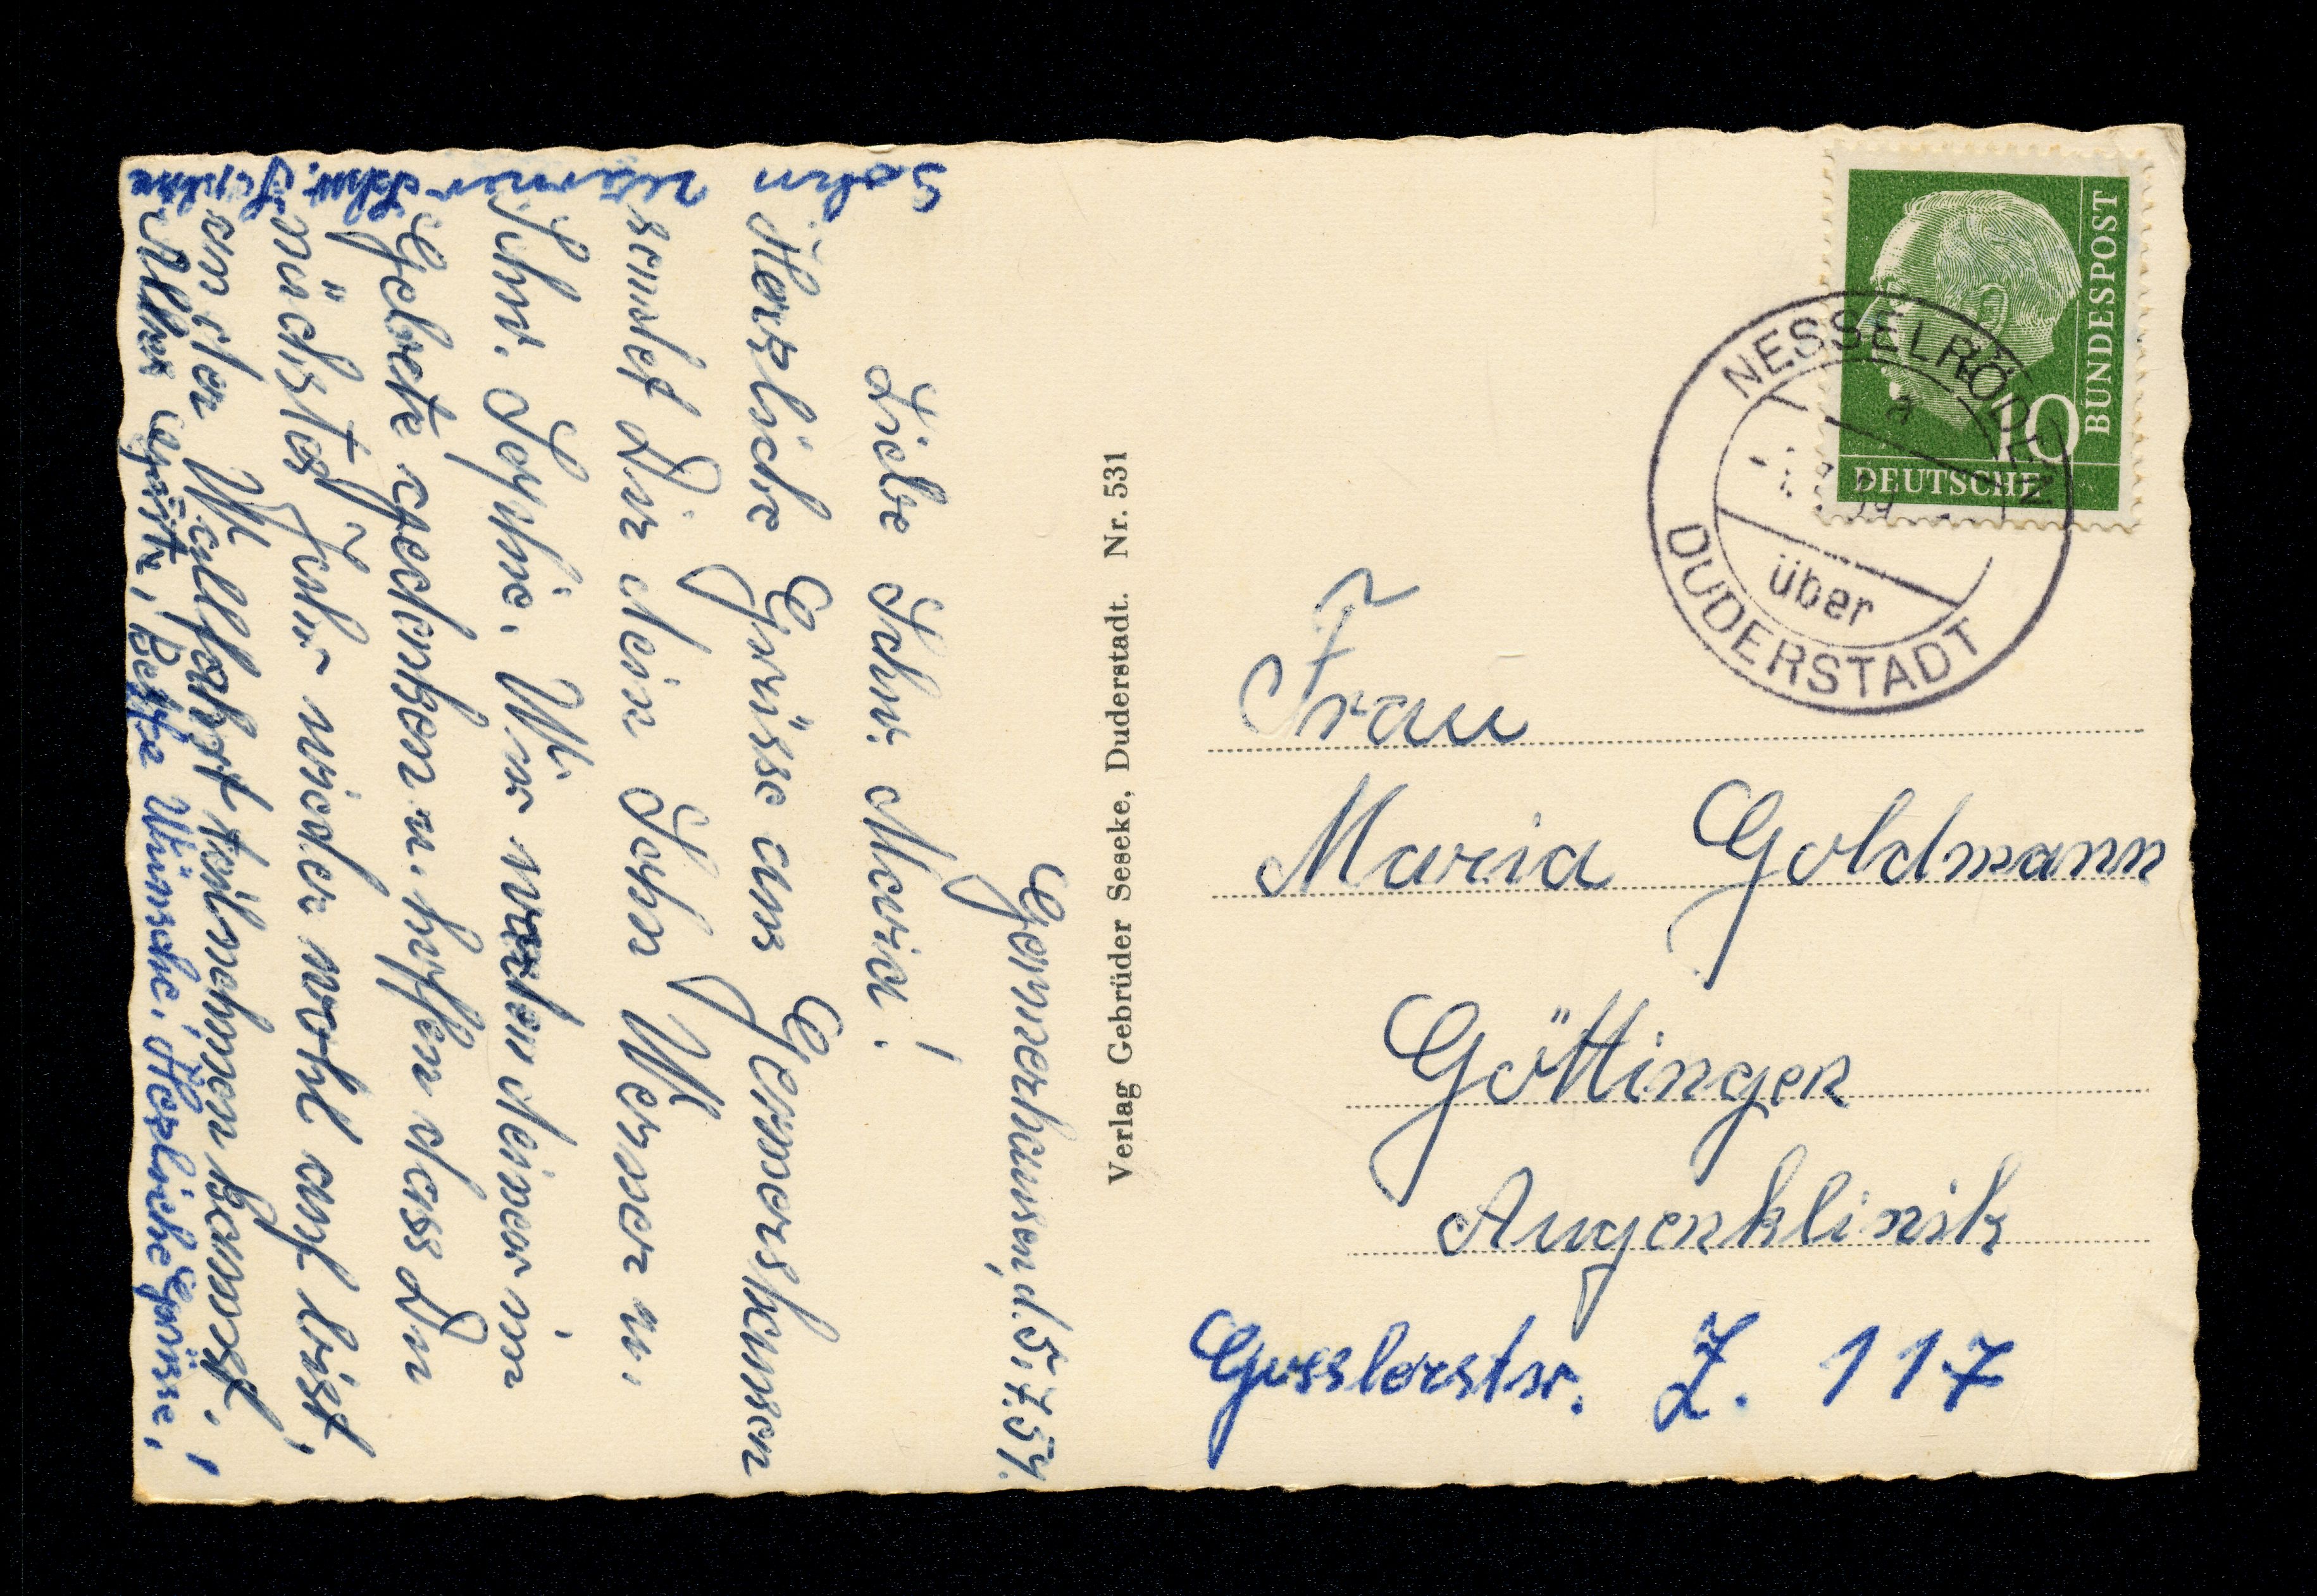 Germershausen, d. 5.7.59.
Liebe Schw. Maria!
Herzliche Grüsse aus Germershausen
sendet Dir dein Sohn Werner u.
Schw. Sophie. Wir wollen deiner im
Gebete gedenken u. hoffen dass Du
nächstes Jahr wieder wohl auf bist,
an der Wallfahrt teilnehmen kannst.
Alles Gute, Beste Wünsche, Herzliche Grüsse,
Sohn Werner Schw. Sophie
Verlag Gebrüder Seseke, Duderstadt. Nr. 531
DEUTSCHE
BUNDESPOST
10
NESSELRÖDEN
a
über
DUDERSTADT
Frau
Maria Goldmann
Göttingen
Augenklinik
Gosslerstr. Z. 117